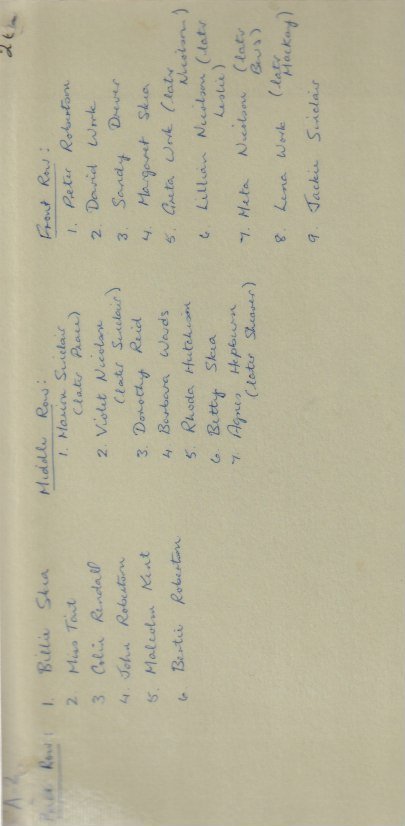 A2
Back Row:
1. Billie Skea
2 Miss Tait
3 Colin Rendall
4. John Robertson
5. Malcolm Kent
6 Bertie Robertson
Middle Row:
1. Maura Sinclair
(later Peace)
2. Violet Nicolson
(later Sinclair)
3. Dorothy Reid
4. Barbara Wards
5. Rhoda Hutchison
6. Betty Skea
7. Agnes Hepburn
(later Shearer)
Front Row:
1. Peter Robertson
2. David Work
3. Sandy Drever
4. Margaret Skea
5. Greta Work (later
Nicolson)
6 Lillian Nicolson (later
Leslie)
7. Meta Nicolson (later
Bews)
8. Lena Work (later
Mackay)
9. Jackie Sinclair